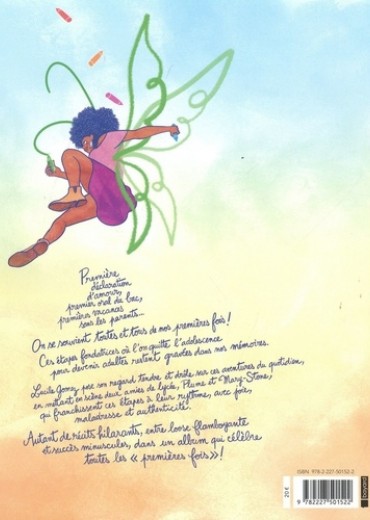 Première
déclaration
d'amour,
premier oral du bac,
premières vacances
sans les parents...
On se souvient toutes et tous de nos premières fois !
Ces étapes fondatrices où l'on quitte l'adolescence
pour devenir adultes restent gravées dans nos mémoires.
Lucile Gomez pose son regard tendre et drôle sur ces aventures du quotidien,
en mettant en scène deux amies de lycée, Plume et Mary-Stone,
qui franchissent ces étapes à leur rythme, avec joie,
maladresse et authenticité.
Autant de récits hilarants, entre loose flamboyante
et succès minuscules, dans un album qui célèbre
toutes les « premières fois » !
ISBN: 978-2-227-50152-2
20 €
9 782227 501522
bayard